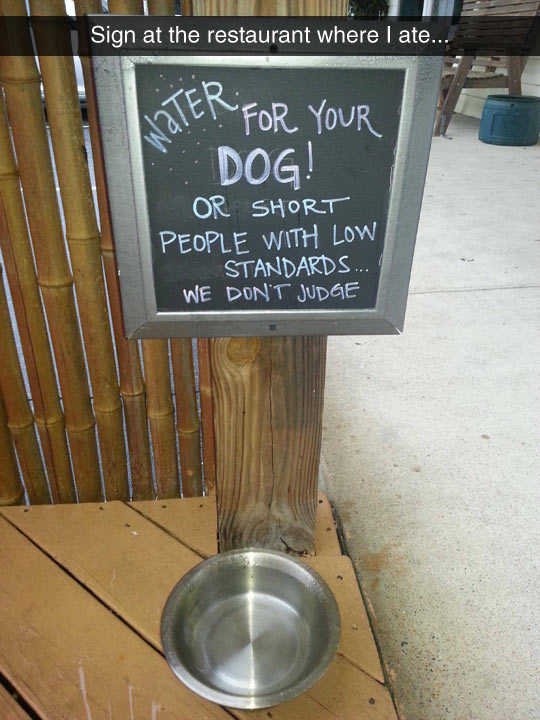 Sign at the restaurant where I ate...
WaTER FOR YOUR
DOG!
OR SHORT
PEOPLE WITH LOW
STANDARDS...
WE DON'T JUDGE